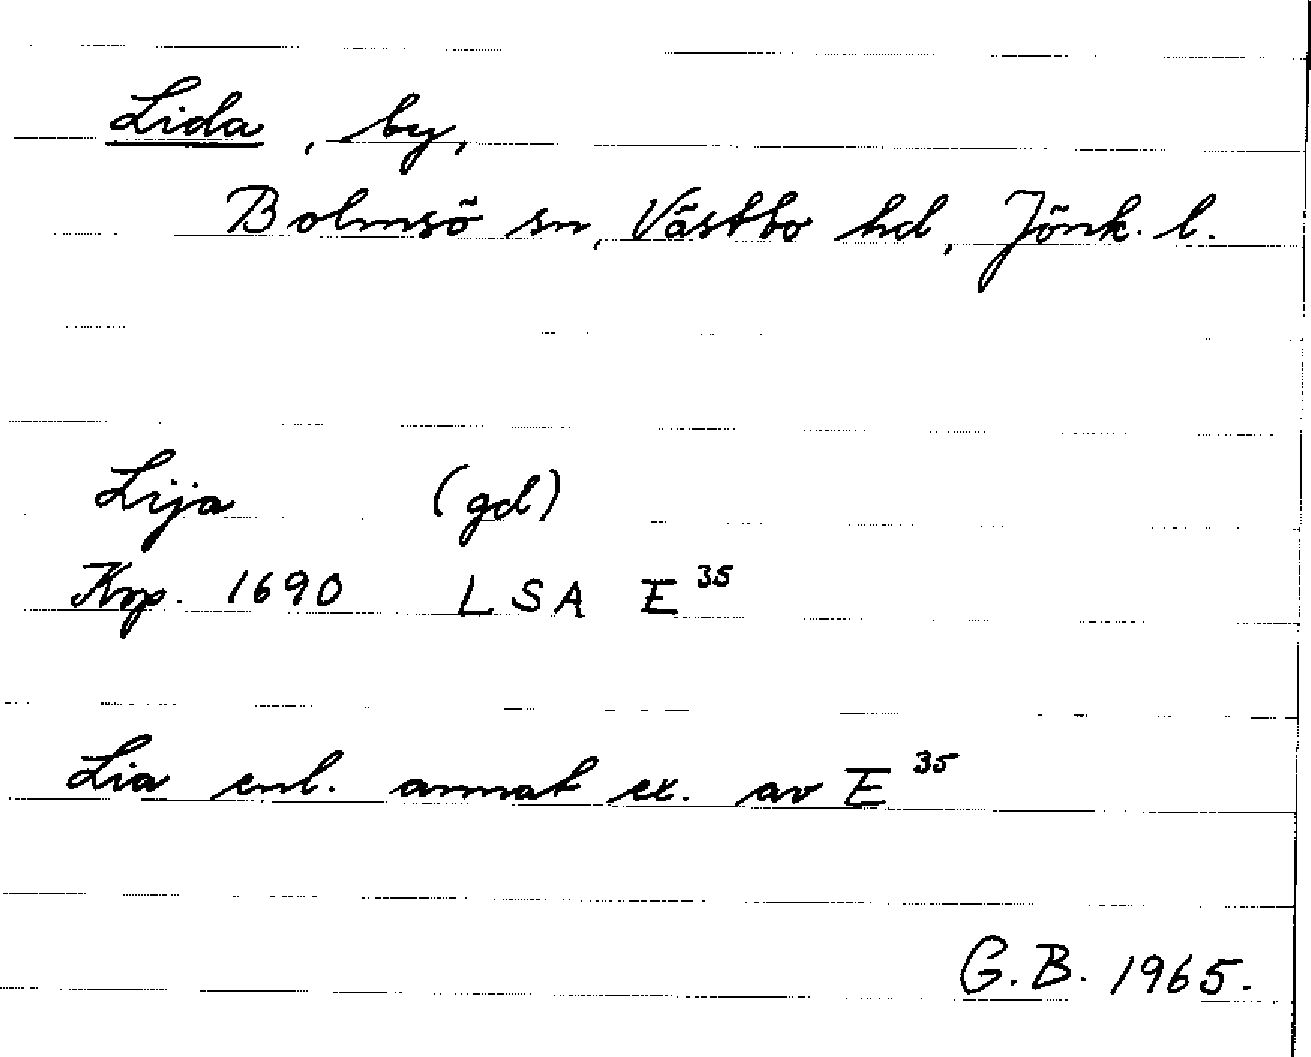 Lida, by,
Bolmsö sn, Västbo hd, Jönk. l.
Lija (gd)
Kop. 1690 LSA E 35
Lia enl. annat ex. av E 35
G.B. 1965.